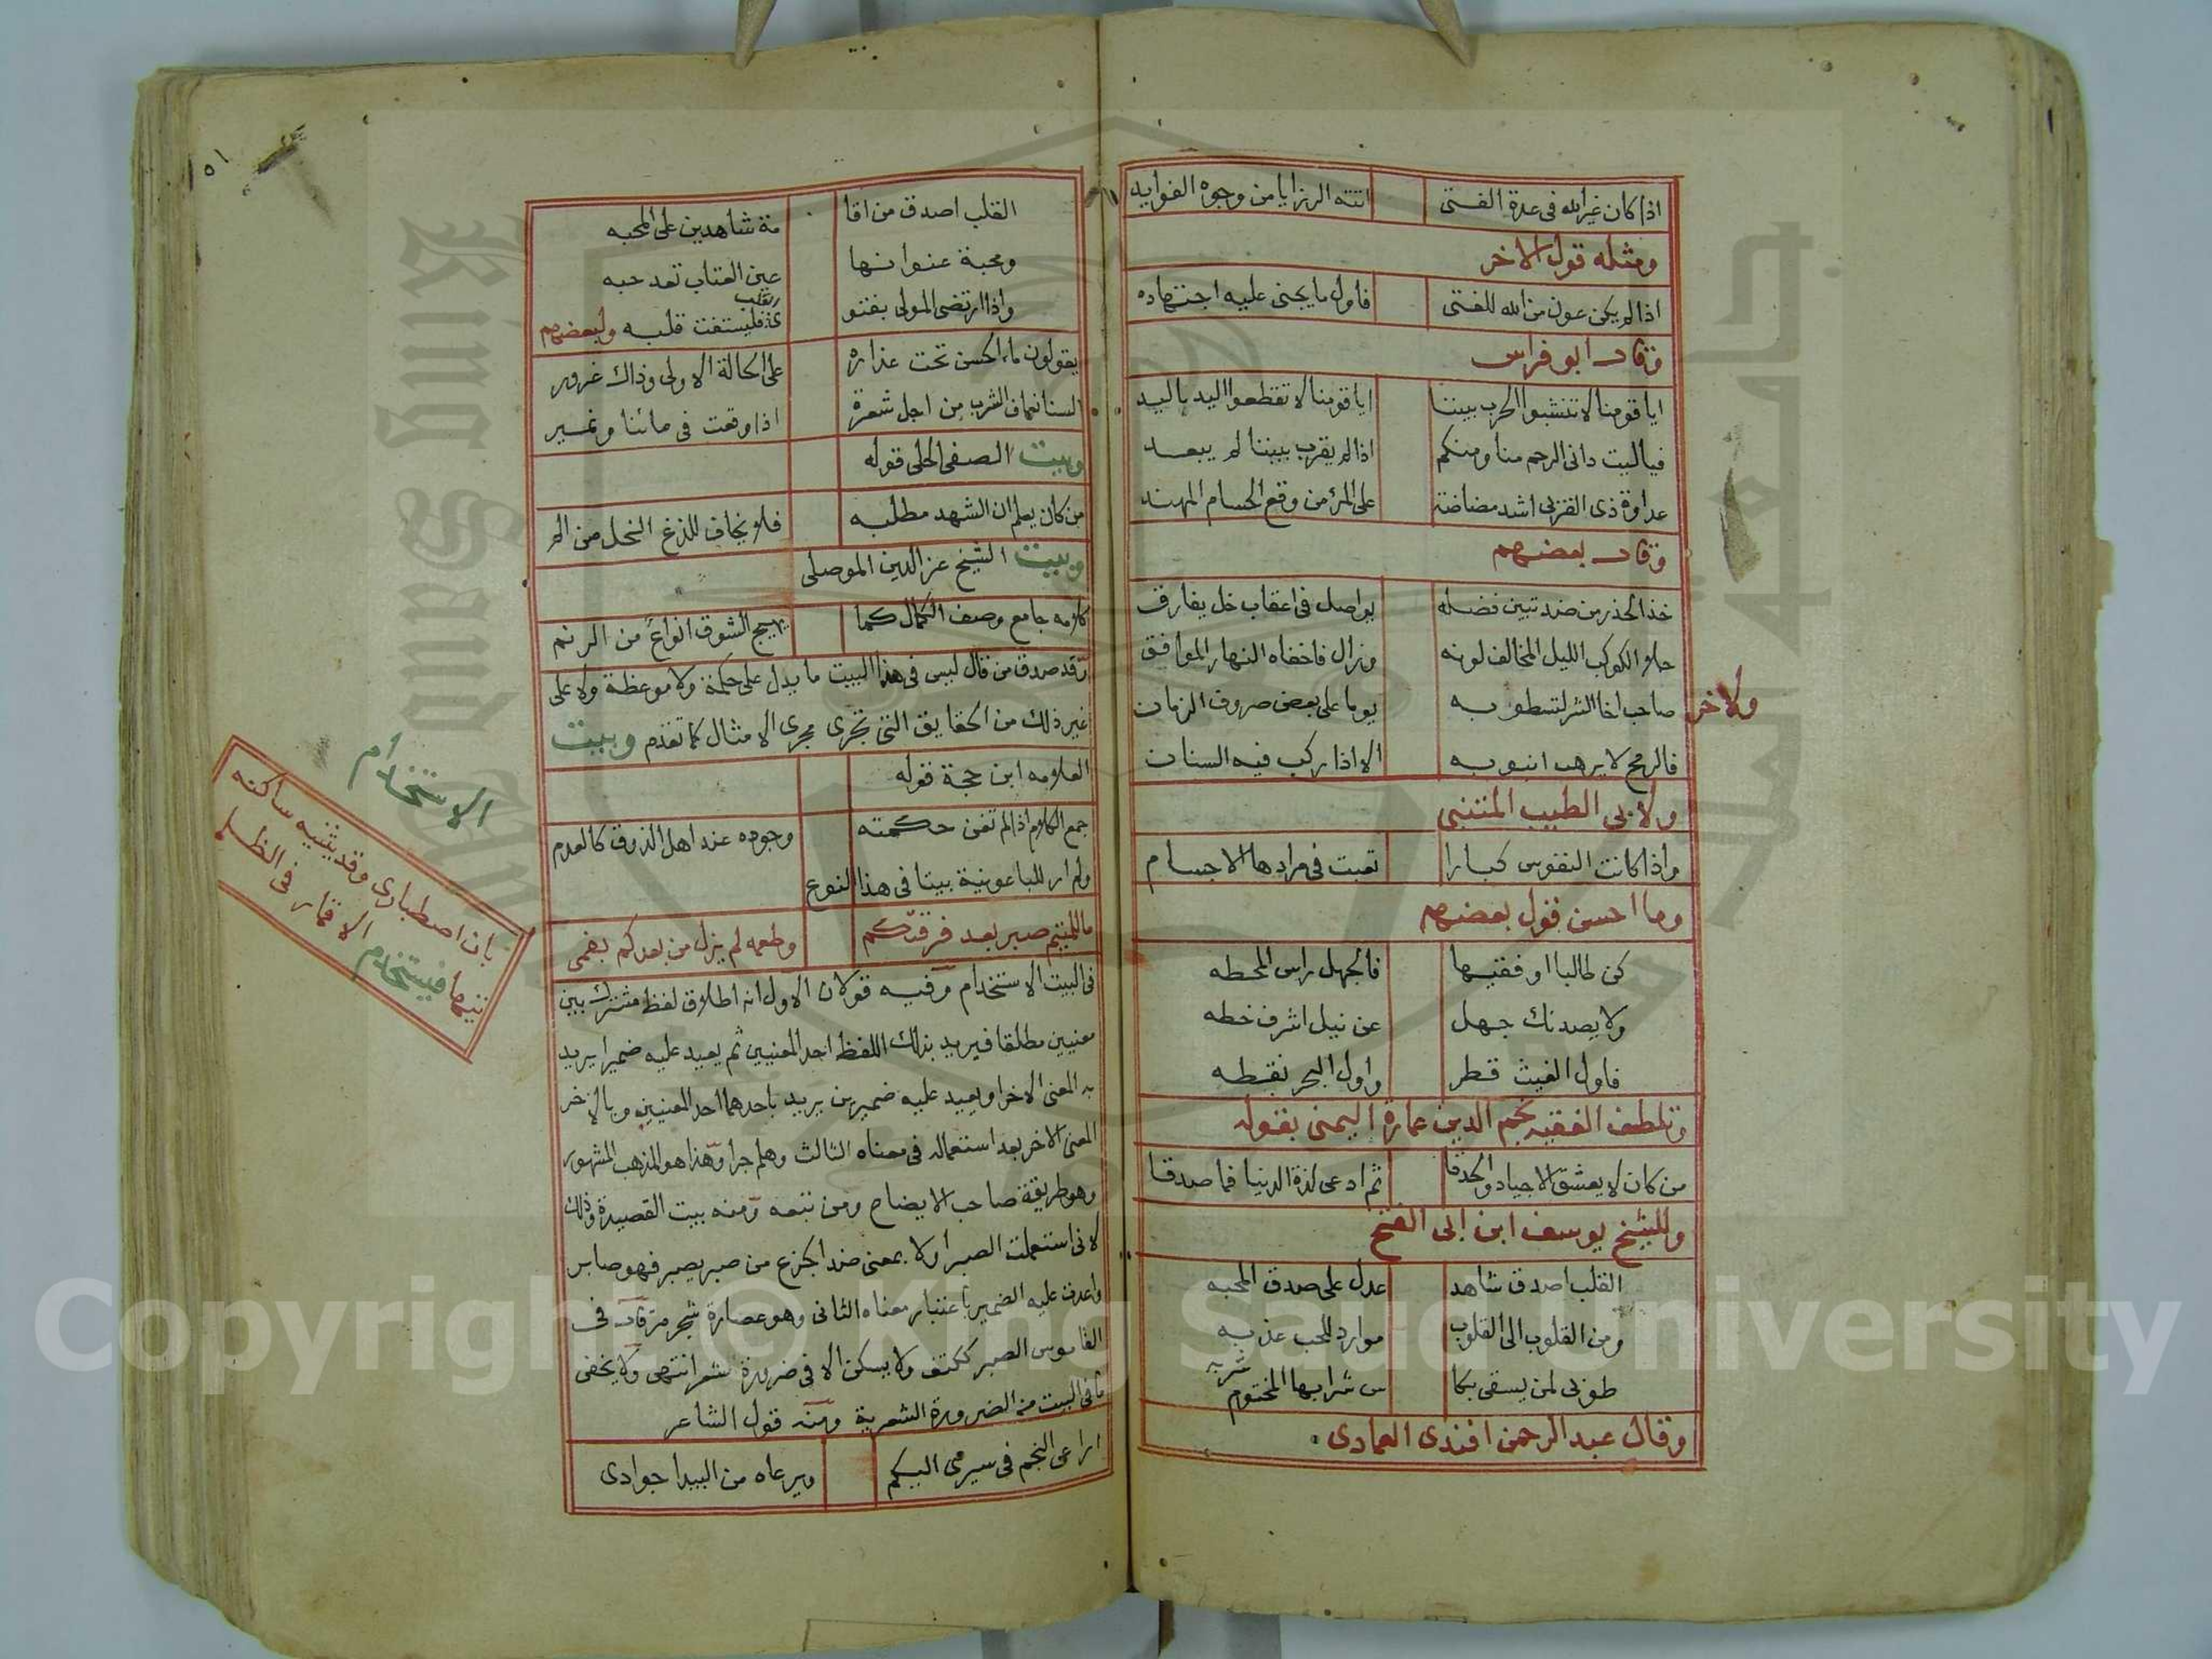 اذا كان غير الله في عدة الفتى اتته الرزايا من وجوه الفوايد
ومثله قول الاخر
اذا لم يكن عون من الله للفتى فاول ما يجنى عليه اجتهاده
وقال ابو فراس
ايا قومنا لا تنشبوا الحرب بيننا ايا قومنا لا تقطعوا اليد باليد
فياليت داني الرحم منا ومنكم اذا لم يقرب بيننا لم يبعد
عداوة ذي القربى اشد مضاضة على المرء من وقع الحسام المهند
وقال بعضهم
خذ الحذر من ضد تبين فضله يواصل في اعقاب خل يفارق
جلا الكوكب الليل المخالف لونه وزال فاخفاه النهار الموافق
ولاخر صاحب اخا الشر لتسطو به يوما على بعض صروف الزمان
فالرمح لا يرهب انبوبه الا اذا ركب فيه السنان
ولابي الطيب المتنبي
واذا كانت النفوس كبارا تعبت في مرادها الاجسام
وما احسن قول بعضهم
كن طالبا او فقيها فالجهل راس المحطه
ولا يصدنك جهل عن نيل اشرف خطه
فاول الغيث قطر واول البحر نقطه
وتلطف الفقيه نجم الدين عمارة اليمنى بقوله
من كان لا يعشق الاجياد والحدقا ثم ادعى لذة الدنيا فما صدقا
وللشيخ يوسف ابن ابى الفتح
القلب اصدق شاهد عدل على صدق المحبه
ومن القلوب الى القلوب موارد للحب عذبه
طوبى لمن يسقى بكا س شرابها المختوم شربه
وقال عبد الرحمن افندى العمادى
١٥١
القلب اصدق من اقا مة شاهدين على المحبه
ومحبة عنوانها عين العتاب تعد حبه
واذا ارتضى المولى بفتو ى فليستفت قلبه ولبعضهم
يقولون ماء الحسن تحت عذاره على الحالة الاولى وذاك غرور
السنا نعاف الشرب من اجل شعرة اذا وقعت في مائنا ونمير
وبيت الصفى الحلى قوله
من كان يعلم ان الشهد مطلبه فلا يخاف للذغ النحل من الم
وبيت الشيخ عز الدين الموصلى
كلامه جامع وصف الكمال كما يهيج الشوق انواع من الرنم
وقد صدق من قال ليس في هذا البيت ما يدل على حكمة ولا موعظة ولا على
غير ذلك من الحقايق التى تجرى مجرى الامثال كما تقدم وبيت
العلامه ابن حجة قوله
جمع الكلام اذا لم تغن حكمته وجوده عند اهل الذوق كالعدم
ولم ار للباعونية بيتا في هذا النوع
ما للمتيم صبر بعد فرقتكم وطعمه لم يزل من بعدكم بفمى
الاستخدام
بان اصطبارى وقد يثنيه ساكنه
تيما فيستخدم الاقمار فى الظلم
في البيت الاستخدام وفيه قولان الاول انه اطلاق لفظ مشترك بين
معنيين مطلقا فيريد بذلك اللفظ احد المعنيين ثم يعيد عليه ضميرا يريد
به المعنى الاخر او يعيد عليه ضميرين يريد باحدهما احد المعنيين وبالاخر
المعنى الاخر بعد استعماله في معناه الثالث وهلم جرا وهذا هو المذهب المشهور
وهو طريقة صاحب الايضاح ومن تبعه ومنه بيت القصيدة وذلك
لانى استعملت الصبر اولا بمعنى ضد الجزع من صبر يصبر فهو صابر
واعدت عليه الضمير باعتبار معناه الثانى وهو عصارة شجر مر قال في
القاموس الصبر ككتف ولا يسكن الا في ضرورة شعر انتهى ولا يخفى
ما في البيت من الضرورة الشعرية ومنه قول الشاعر
اراعى النجم في سيرى اليكم ويرعاه من البيدا جوادى
Copyright © King Saud University